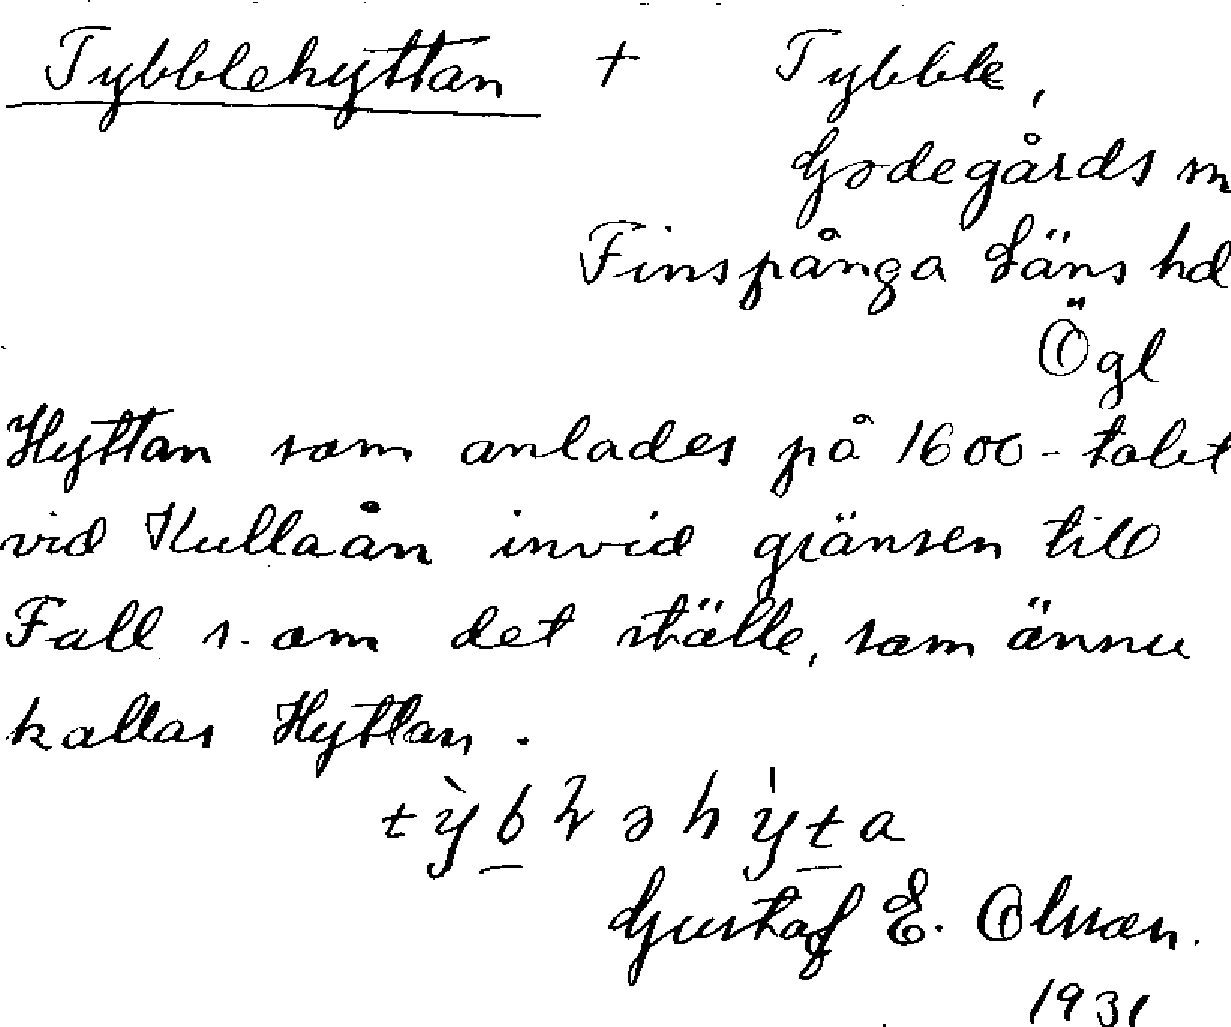 Tybblehyttan + Tybble,
Godegårds sn
Finspånga Läns hd
Ögl
Hyttan som anlades på 1600-talet
vid Kullaån invid gränsen till
Fall s. om det ställe, som ännu
kallas Hyttan.
Gustaf E. Olsson.
1931